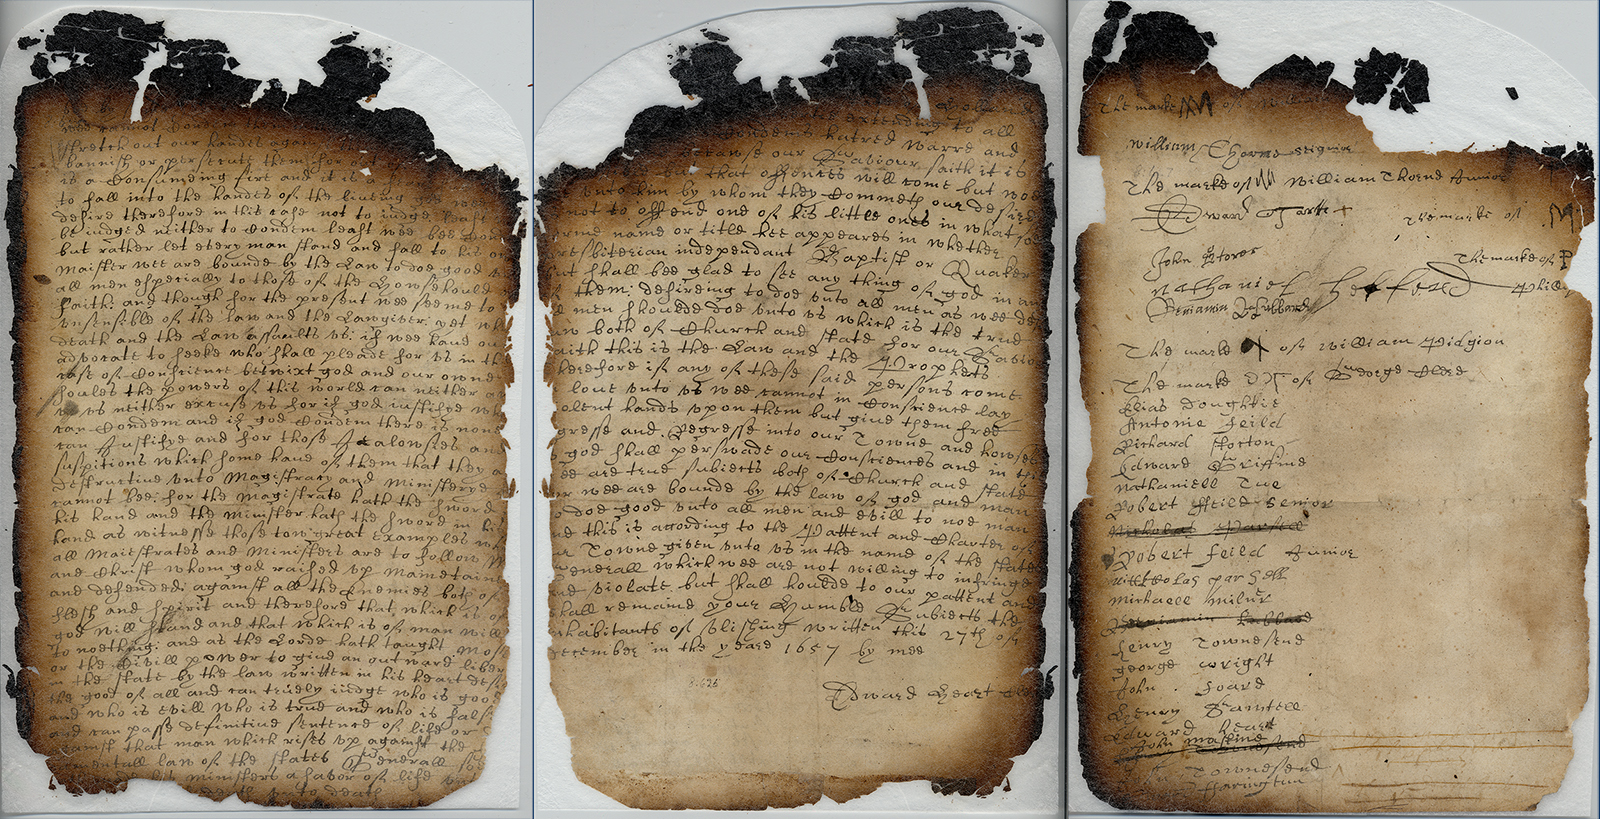 wee cannot Conde
stretch out our handes again
bannish or persecute them for out of
is a Consuminge fire and it is a
to fall into the handes of the liuing god wee
desire therefore in this case not to iudge least
be iudged neither to Condem least wee bee Con
but rather let euery man stand and fall to his ow
Maister wee are bounde by the Law to doe good
all men especially to those of the howsehould
faith and though for the present wee seeme to
vnsensible of the law and the Lawgiuer: yet wh
death and the Law assaults vs: if wee haue ou
aduocate to seeke who shall pleade for vs in th
case of Conscience betwixt god and our owne
soules the powers of this world can neither a
vs neither excuse vs for if god iustifye wh
can Condem and if god Condem there is none
can Justifye and for those Jealowsies and
suspitions which some haue of them that they a
destructiue vnto Magistracy and Ministerye
cannot bee: for the Magistrate hath the sword
his hand and the Minister hath the sword in hi
hand as witnesse those tow great examples wh
all Maiestrates and Ministers are to follow M
and Christ whom god raised vp Maintain
and defended against all the Enemies both of
flesh and spirit and therefore that which is of
god will stand and that which is of man will
to noething: and as the Lorde hath taught Mos
or the Civill power to giue an outward liber
in the state by the law written in his heart desi
the good of all and can truely iudge who is goo
and who is evill who is true and who is fals
and can passe definitiue sentence of life or
against that man which rises vp against the
amentall law of the states Generall so
his ministers a savor of life
death vnto death
extending to all
condems hatred warre and
cawse our Saviour saith it is
but that offences will come but woe
vnto him by whom they Commeth our desire
not to offend one of his little ones in what so
orme name or title hee appeares in whether
resbiterian independant Baptist or Quaker
ut shall bee glad to see any thing of god in an
f them: desireing to doe vnto all men as wee de
l men should doe vnto vs which is the true
aw both of Church and state for our Savio
aith this is the Law and the Prophets
herefore if any of these said persons come
loue vnto vs wee cannot in Conscience lay
olent hands vpon them but giue them free
gresse and Regresse into our Towne and howse
s god shall perswade our Consciences and in th
ee are true subiects both of Church and state
or wee are bounde by the law of god and man
o doe good vnto all men and evill to noe man
nd this is acording to the Pattent and Charter of
r Towne given vnto vs in the name of the state
enerall which wee are not willing to infringe
nd violate but shall houlde to our pattent and
hall remaine your Humble Subiects the
nhabitants of vlishing written this 27th of
ecember in the yeare 1657 by mee
8.625
Edward Heart Cle
The marke of William
William Thorne seignior
The marke of William Thorne Junior
Edward Tarne
The marke of
John Storer
The marke of P
Nathaniel Hefferd Phili
Beniamin Hubbard
The marke of William Pidgion
The marke of George Clere
Elias doughtie
Antonie feild
Richard Stocton
Edward Griffine
Nathaniell Tue
Robert ffeild Senior
Nicholas Parsell
Robert feild Junior
nickolas parsell
Michaell Milner
Beniamin Hubbard
henry Townesend
george wright
John foard
Henry Samtell
Edward Heart
John Mastine
John Townesend
Edward ffarington